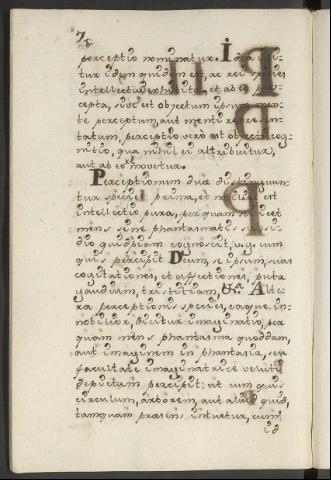 78
perceptio nominatur. Idea
tur idem quidem est, ac rei species
intellectui exhibita, et ab eo per-
cepta, sive est objectum ipsum men-
te perceptum, aut menti repræsen-
tatum, perceptio vero est objecti cog-
nitio, qua nihil ei attribuitur,
aut ab eo removetur.
Perceptionum duæ distinguun-
tur species prima, et nobilior est
intellectio pura, per quam scilicet
mens sine phantasmatis subsi-
dio quidpiam cognoscit, v.g. cum
quis percipit Deum, se ipsum, suas
cogitationes, et affectiones, puta
gaudium, tristitiam, &c. Alte-
ra perceptionis species, eaque ig-
nobilior, dicitur imaginatio, per
quam mens phantasma quoddam,
aut imaginem in phantasia, seu
facultate imaginatrice veluti
depictum percipit: ut cum quis
circulum, arborem, aut aliud quid,
tamquam præsens intuetur, cum
id